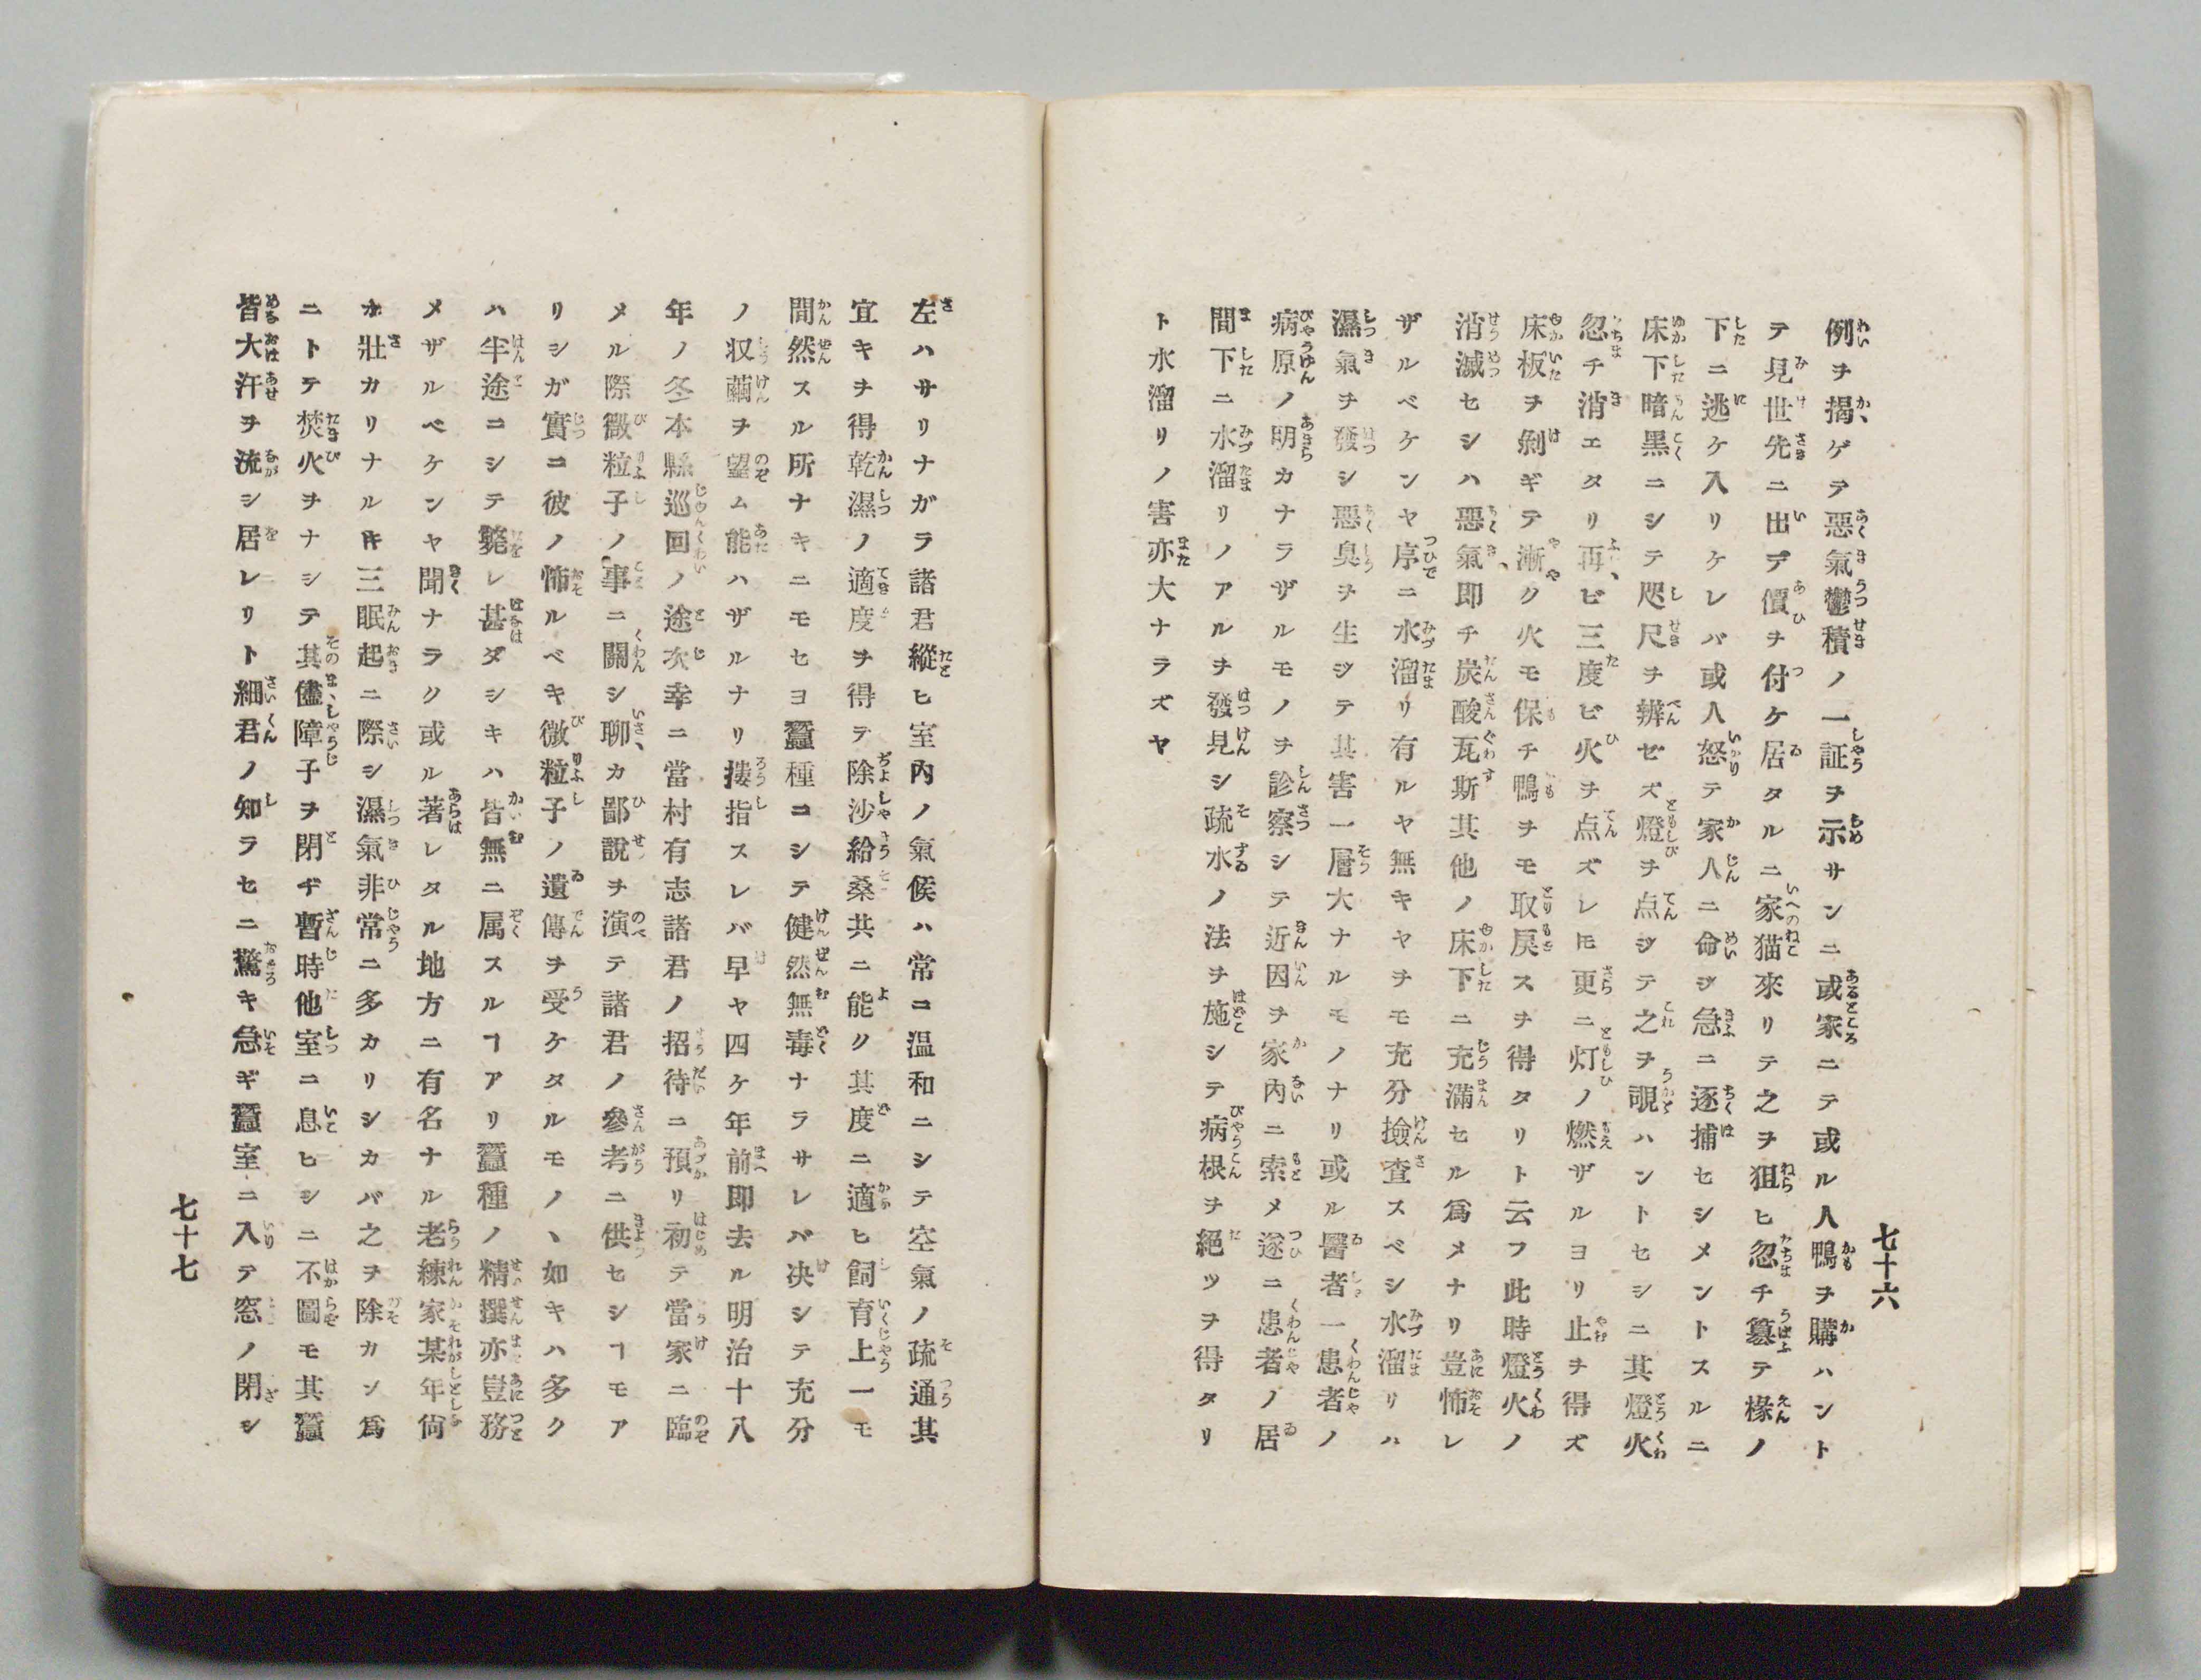 七十六
例ヲ揭ゲテ惡氣鬱積ノ一証ヲ示サンニ或家ニテ或ル人鴨ヲ購ハント
テ見世先ニ出デ價ヲ付ケ居タルニ家猫來リテ之ヲ狙ヒ忽チ簒テ椽ノ
下ニ逃ケ入リケレバ或人怒テ家人ニ命ジ急ニ逐捕セシメントスルニ
床下暗黑ニシテ咫尺ヲ辨ゼズ燈ヲ点ジテ之ヲ覗ハントセシニ其燈火
忽チ消エタリ再ビ三度ビ火ヲ点ズレ𪜈更ニ灯ノ燃ザルヨリ止ヲ得ズ
床板ヲ剝ギテ漸ク火モ保チ鴨ヲモ取戻スヲ得タリト云フ此時燈火ノ
消滅セシハ惡氣即チ炭酸瓦斯其他ノ床下ニ充滿セル爲メナリ豈怖レ
ザルベケンヤ序ニ水溜リ有ルヤ無キヤヲモ充分撿査スベシ水溜リハ
濕氣ヲ發シ惡臭ヲ生ジテ其害一層大ナルモノナリ或ル醫者一患者ノ
病原ノ明カナラザルモノヲ診察シテ近因ヲ家內ニ索メ遂ニ患者ノ居
間下ニ水溜リノアルヲ發見シ疏水ノ法ヲ施シテ病根ヲ絕ツヲ得タリ
ト水溜リノ害亦大ナラズヤ
左ハサリナガラ諸君縱ヒ室內ノ氣候ハ常ニ温和ニシテ空氣ノ疏通其
宜キヲ得乾濕ノ適度ヲ得テ除沙給桑共ニ能ク其度ニ適ヒ飼育上一モ
間然スル所ナキニモセヨ蠶種ニシテ健然無毒ナラサレバ决シテ充分
ノ収繭ヲ望ム能ハザルナリ摟指スレバ早ヤ四ケ年前即去ル明治十八
年ノ冬本縣巡回ノ途次幸ニ當村有志諸君ノ招待ニ預リ初テ當家ニ臨
メル際微粒子ノ事ニ關シ聊カ鄙說ヲ演テ諸君ノ參考ニ供セシヿモア
リシガ實ニ彼ノ怖ルベキ微粒子ノ遺傳ヲ受ケタルモノヽ如キハ多ク
ハ半途ニシテ斃レ甚ダシキハ皆無ニ属スルヿアリ蠶種ノ精撰亦豈務
メザルベケンヤ聞ナラク或ル著レタル地方ニ有名ナル老練家某年尙
ホ壯カリナル𪜈三眠起ニ際シ濕氣非常ニ多カリシカバ之ヲ除カン爲
ニトテ焚火ヲナシテ其儘障子ヲ閉ヂ暫時他室ニ息ヒシニ不圖モ其蠶
皆大汗ヲ流シ居レリト細君ノ知ラセニ驚キ急ギ蠶室ニ入テ窓ノ閉シ
七十七